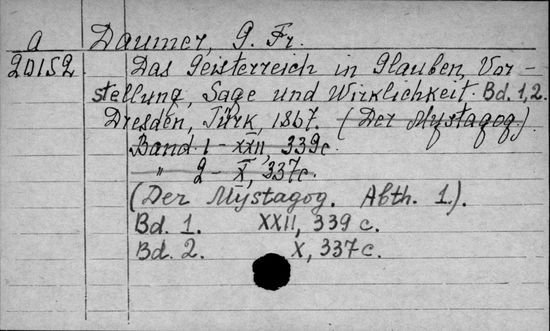 a Daumer, G. Fr.
20152 Das Geisterreich in Glauben, Vor-
stellung, Sage und Wirklichkeit. Bd. 1,2.
Dresden, Türk, 1867. (Der Mystagog).
Band 1 - XXII, 339c.
" 2 - X, 337c.
(Der Mystagog. Abth. 1.).
Bd. 1. XXII, 339 c.
Bd. 2. X, 337c.